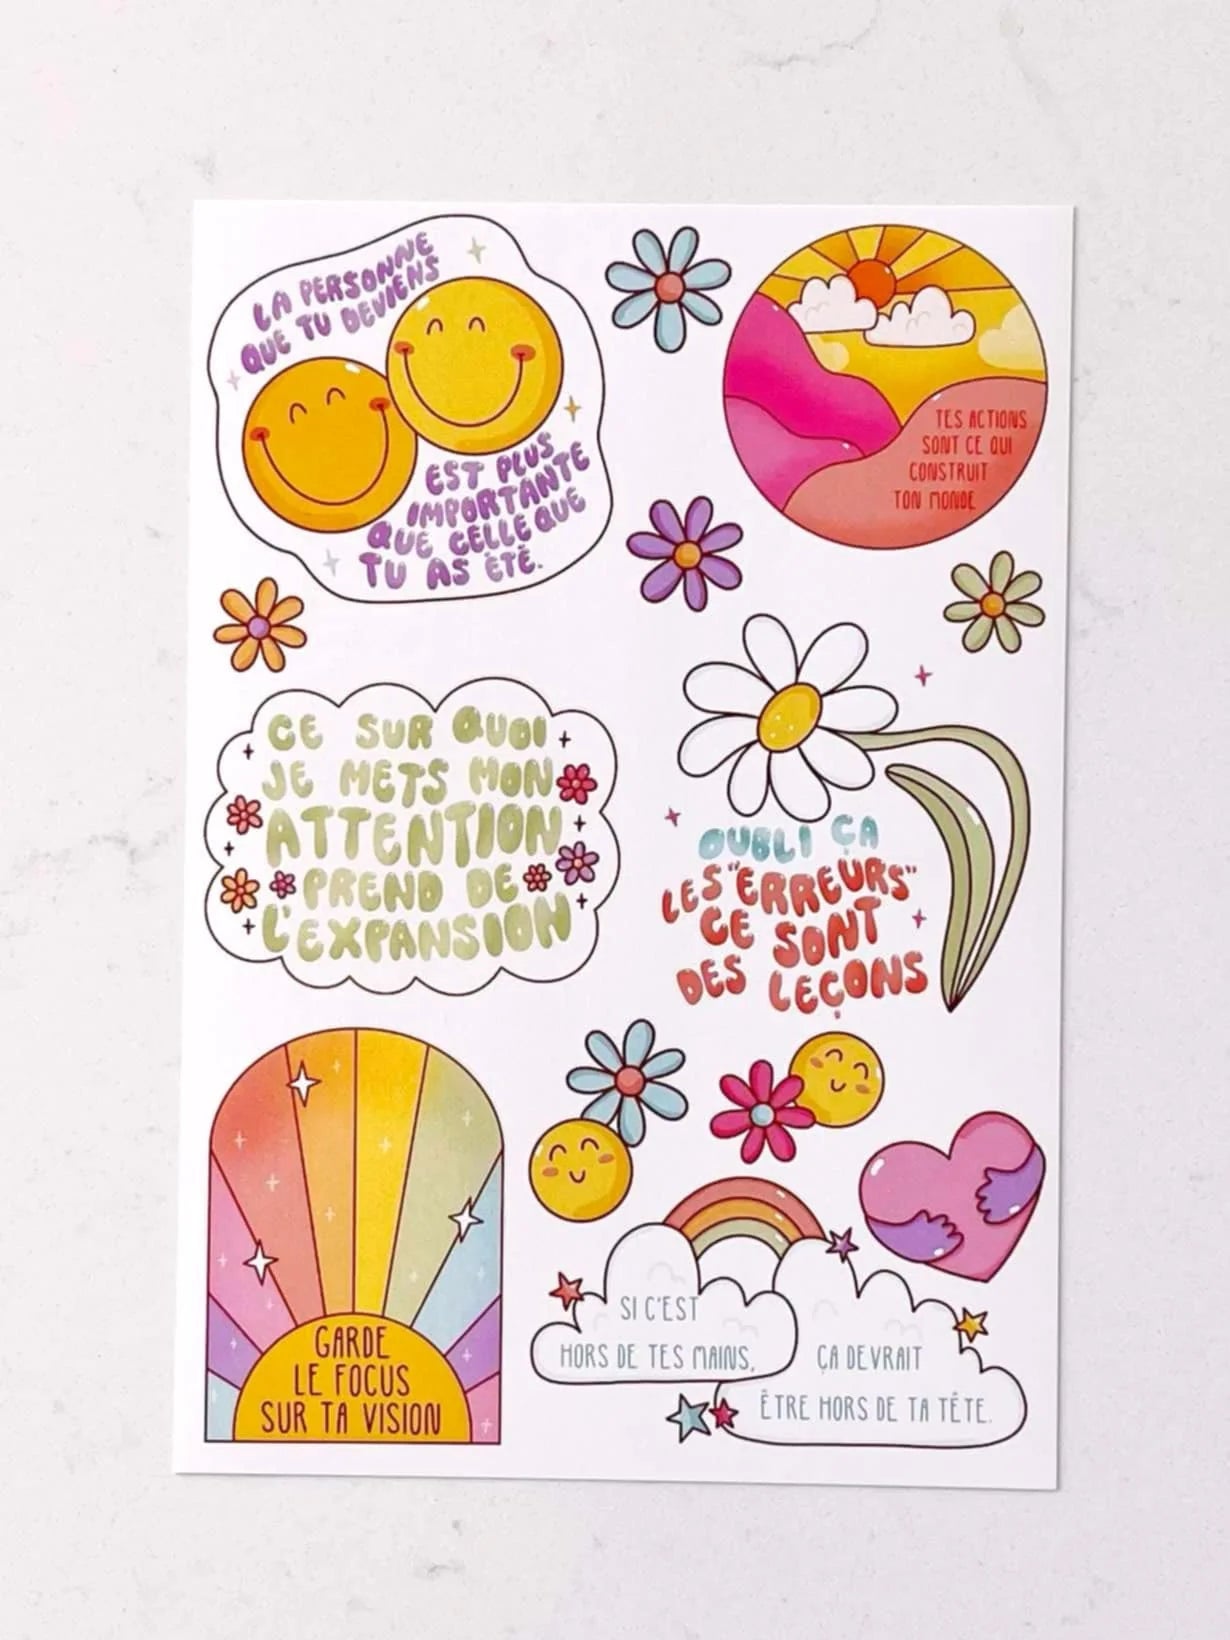 LA PERSONNE
QUE TU DEVIENS
EST PLUS
IMPORTANTE
QUE CELLE QUE
TU AS ÉTÉ.
TES ACTIONS
SONT CE QUI
CONSTRUIT
TON MONDE
CE SUR QUOI
JE METS MON
ATTENTION
PREND DE
L'EXPANSION
OUBLI ÇA
LES "ERREURS"
CE SONT
DES LEÇONS
GARDE
LE FOCUS
SUR TA VISION
SI C'EST
HORS DE TES MAINS,
ÇA DEVRAIT
ÊTRE HORS DE TA TÊTE.